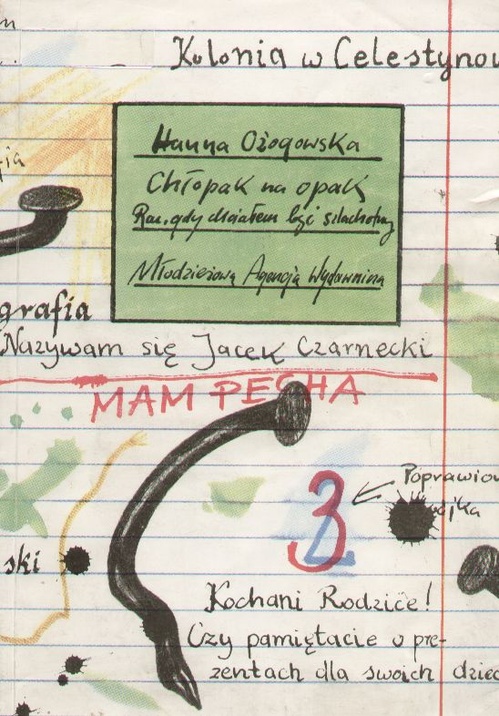 Kolonia w Celestynow
Hanna Ożogowska
Chłopak na opak
Raz, gdy chciałem być szlachetny
Młodzieżowa Agencja Wydawnicza
grafia
Nazywam się Jacek Czarnecki
MAM PECHA
3
Poprawion
ójka
ski
Kochani Rodzice!
Czy pamiętacie o pre-
zentach dla swoich dziec